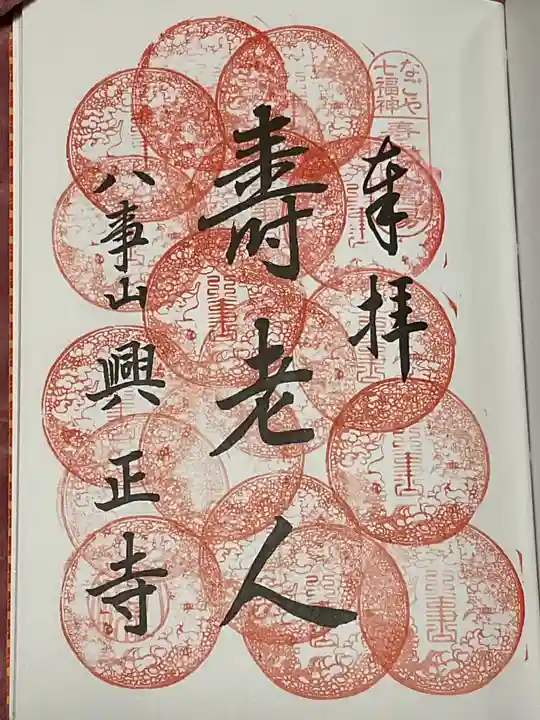 なごや
七福神
奉拝
壽老人
八事山 興正寺